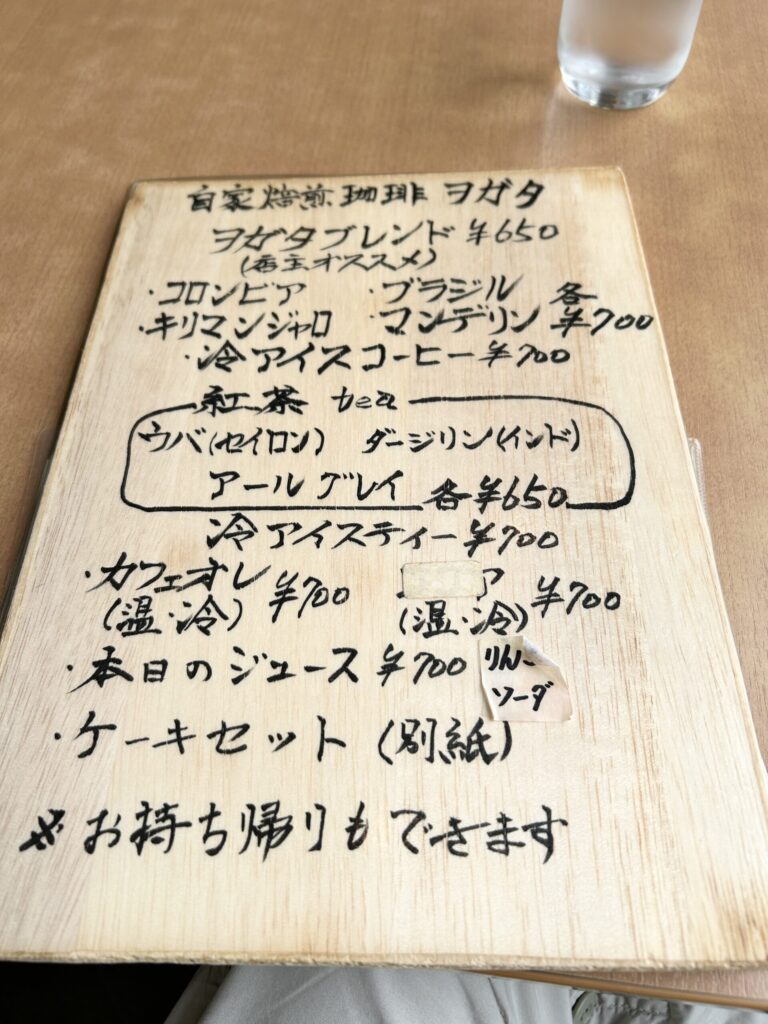 自家焙煎珈琲 ヨガタ
ヨガタブレンド ¥650
(店主オススメ)
・コロンビア ・ブラジル 各
・キリマンジャロ ・マンデリン ¥700
・冷アイスコーヒー ¥700
紅茶 tea
ウバ(セイロン) ダージリン(インド)
アールグレイ 各¥650
冷アイスティー ¥700
・カフェオレ ¥700
(温・冷)
ア ¥700
(温・冷)
・本日のジュース ¥700
りんご
ソーダ
・ケーキセット (別紙)
※お持ち帰りもできます